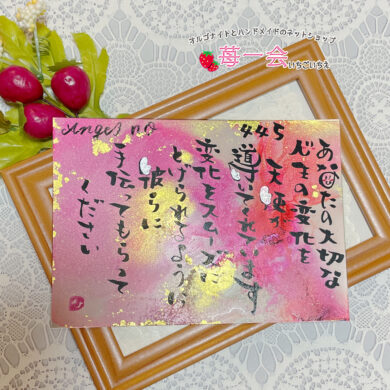 オルゴナイトとハンドメイドのネットショップ
苺一会
いちごいちえ
Angel no
445
あなたの大切な
人生の変化を
天使が
導いてくれています
変化をスムーズに
とげられるように
彼らに
手伝ってもらって
ください